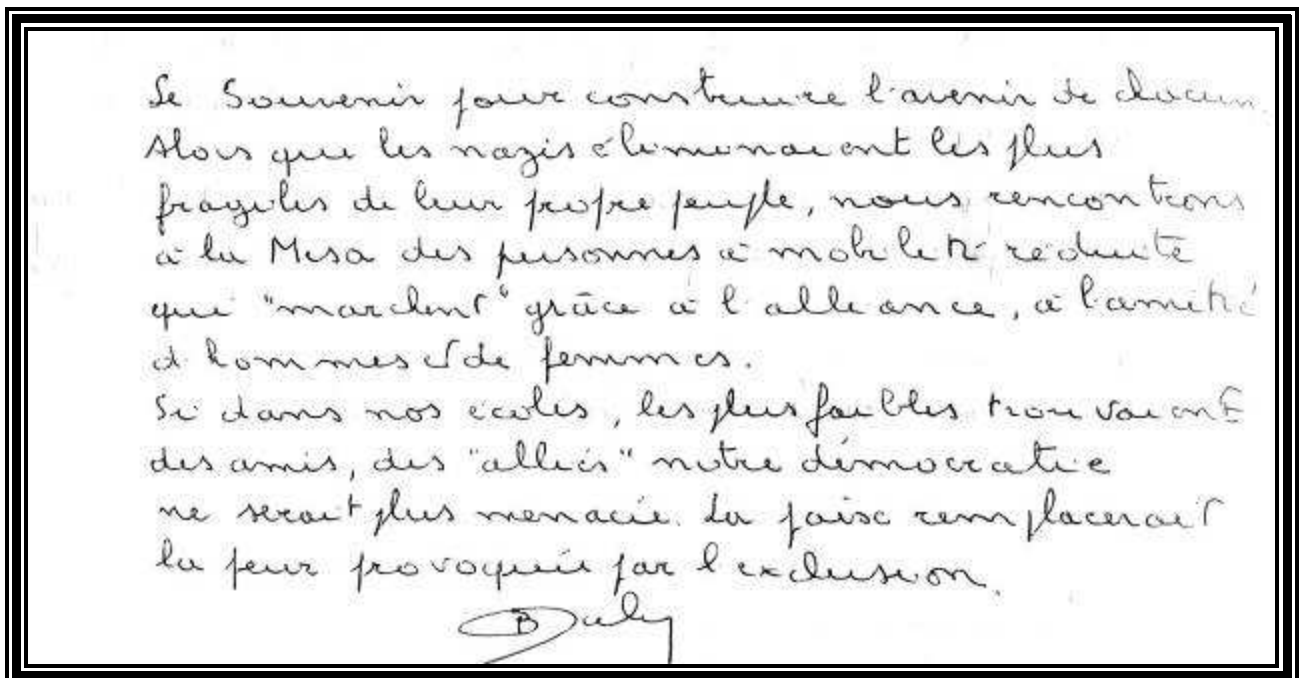 Se Souvenir pour construire l'avenir de chacun.
Alors que les nazis éliminaient les plus
fragiles de leur propre peuple, nous rencontrons
à la Mesa des personnes à mobilité réduite
qui "marchent" grâce à l'alliance, à l'amitié
d'hommes et de femmes.
Si dans nos écoles, les plus faibles trouvaient
des amis, des "alliés" notre démocratie
ne serait plus menacée. La paix remplacerait
la peur provoquée par l'exclusion.